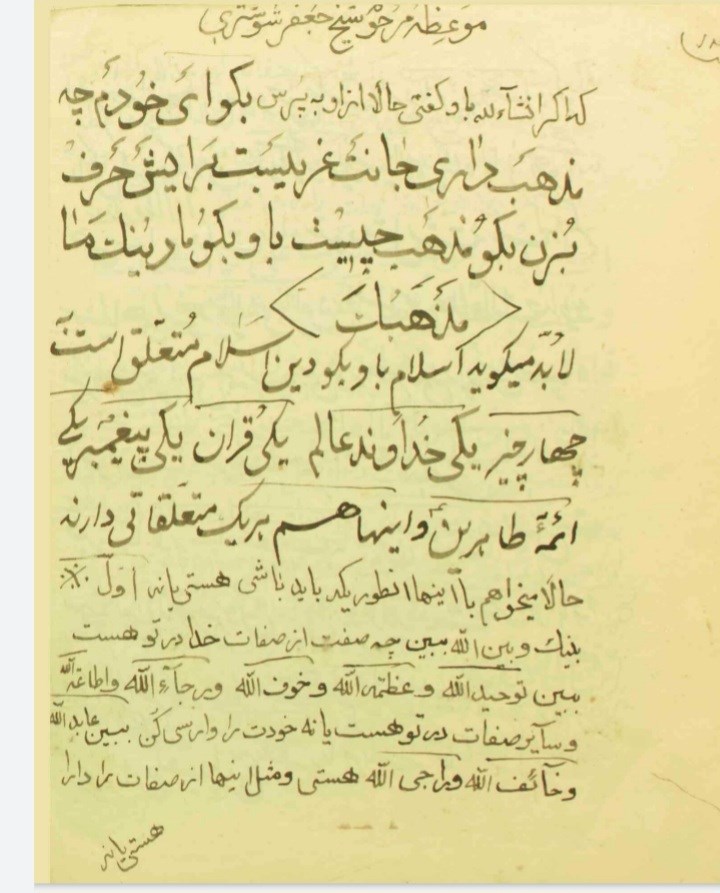 موعظه مرحوم شیخ جعفر شوشتری
که اگر انشآءلله باو گفتی حالا از او به پرس بگو ای خودم چه
مذهب داری جانت غریبست برایش حرف
بزن بگو مذهب چیست باو بگو با دینت
مذهبات
لابد میگوید اسلام باو بگو دین اسلام متعلق است
چهار چیز یکی خداوند عالم یکی قران یکی پیغمبر یکی
ائمّهٔ طاهرین و اینها هم هریک متعلقاتی دارند
حالا میخواهم با اینها انطوریکه باید باشی هستی یا نه اول
بینک و بین الله ببین چه صفت از صفات خدا در تو هست
ببین توحید الله و عظمة الله و خوف الله و رجآء الله و اطاعة الله
و سآیر صفات در تو هست یا نه خودت را وارسی کن ببین عابد الله
و خآئف الله و راجی الله هستی و مثل اینها از صفات را دارا
هستی یا نه